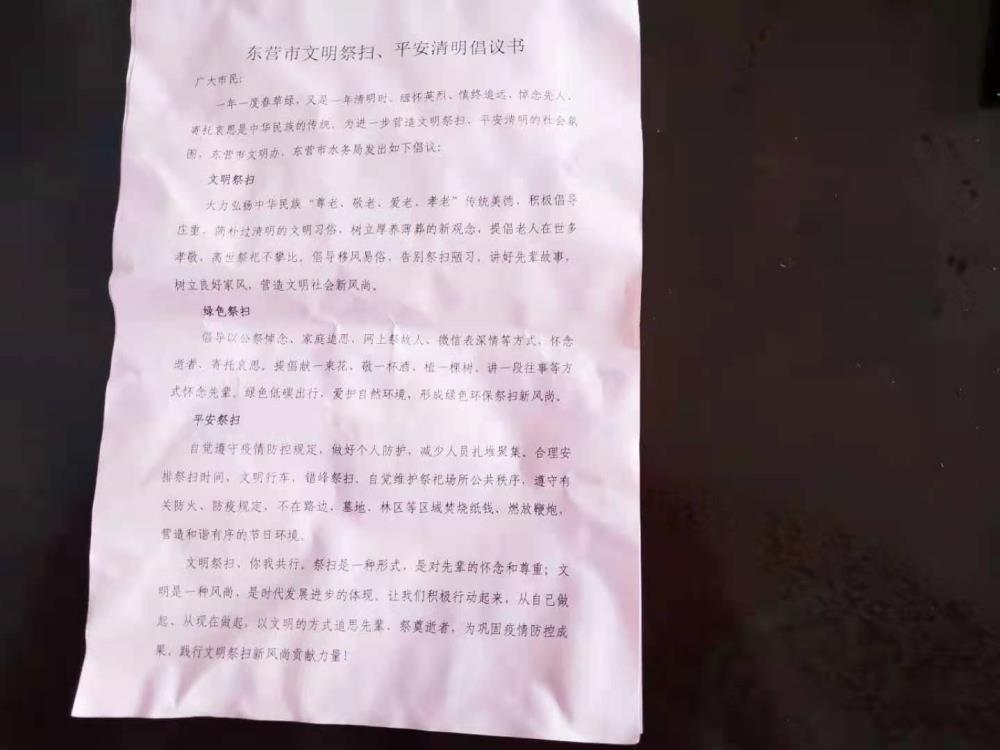 东营市文明祭扫、平安清明倡议书
广大市民：
一年一度春草绿，又是一年清明时。缅怀英烈、慎终追远、悼念先人、
寄托哀思是中华民族的传统。为进一步营造文明祭扫、平安清明的社会氛
围，东营市文明办、东营市水务局发出如下倡议：
文明祭扫
大力弘扬中华民族“尊老、敬老、爱老、孝老”传统美德，积极倡导
庄重、简朴过清明的文明习俗，树立厚养薄葬的新观念，提倡老人在世多
孝敬，离世祭祀不攀比。倡导移风易俗，告别祭扫陋习，讲好先辈故事，
树立良好家风，营造文明社会新风尚。
绿色祭扫
倡导以公祭悼念、家庭追思、网上祭故人、微信表深情等方式，怀念
逝者、寄托哀思。提倡献一束花、敬一杯酒、植一棵树、讲一段往事等方
式怀念先辈。绿色低碳出行，爱护自然环境，形成绿色环保祭扫新风尚。
平安祭扫
自觉遵守疫情防控规定，做好个人防护，减少人员扎堆聚集、合理安
排祭扫时间，文明行车，错峰祭扫、自觉维护祭祀场所公共秩序，遵守有
关防火、防疫规定，不在路边，墓地、林区等区域焚烧纸钱、燃放鞭炮，
营造和谐有序的节日环境。
文明祭扫、你我共行。祭扫是一种形式，是对先辈的怀念和尊重；文
明是一种风尚，是时代发展进步的体现。让我们积极行动起来，从自己做
起、从现在做起，以文明的方式追思先辈、祭奠逝者，为巩固疫情防控成
果，践行文明祭扫新风尚贡献力量！